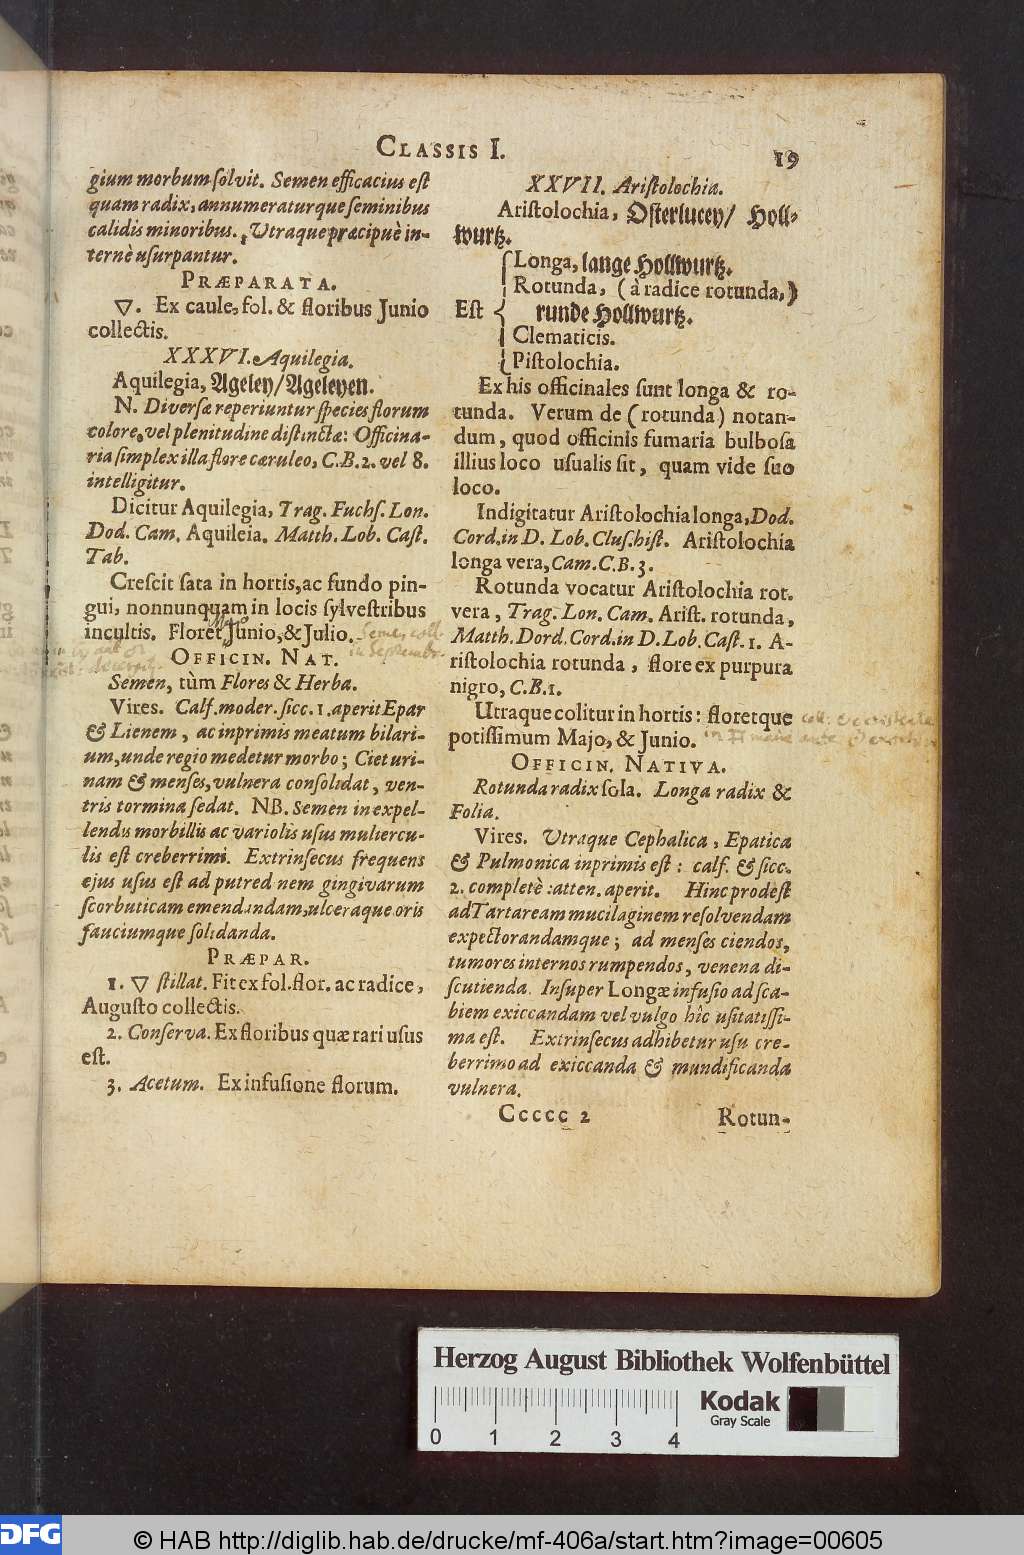 CLASSIS I.
19
gium morbum ſolvit. Semen efficacius eſt
quam radix, annumeraturque ſeminibus
calidis minoribus. Utraque præcipuè in-
ternè uſurpantur.
PRÆPARATA.
▽. Ex caule, fol. & floribus Junio
collectis.
XXXVI. Aquilegia.
Aquilegia, Ageley/Ageleyen.
N. Diverſæ reperiuntur ſpecies florum
colore, vel plenitudine diſtinctæ: Officina-
ria ſimplex illa flore cæruleo, C.B.2. vel 8.
intelligitur.
Dicitur Aquilegia, Trag. Fuchſ. Lon.
Dod. Cam. Aquileia. Matth. Lob. Caſt.
Tab.
Creſcit ſata in hortis, ac fundo pin-
gui, nonnunquam in locis ſylveſtribus
incultis. Floret Junio, & Julio.
OFFICIN. NAT.
Semen, tùm Flores & Herba.
Vires. Calf. moder. ſicc. 1. aperit Epar
& Lienem, ac inprimis meatum bilari-
um, unde regio medetur morbo; Ciet uri-
nam & menſes, vulnera conſolidat, ven-
tris tormina ſedat. NB. Semen in expel-
lendis morbillis ac variolis uſus muliercu-
lis eſt creberrimi. Extrinſecus frequens
ejus uſus eſt ad putredinem gingivarum
ſcorbuticam emendandam, ulceraque oris
fauciumque ſolidanda.
PRÆPAR.
1. ▽ ſtillat. Fit ex fol. flor. ac radice,
Auguſto collectis.
2. Conſerva. Ex floribus quæ rari uſus
eſt.
3. Acetum. Ex infuſione florum.
XXVII. Ariſtolochia.
Ariſtolochia, Oſterlucey/ Holl-
wurtz.
Longa, lange Hollwurtz.
Rotunda, (à radice rotunda,)
Eſt runde Hollwurtz.
Clematicis.
Piſtolochia.
Ex his officinales ſunt longa & ro-
tunda. Verum de (rotunda) notan-
dum, quod officinis fumaria bulboſa
illius loco uſualis ſit, quam vide ſuo
loco.
Indigitatur Ariſtolochia longa, Dod.
Cord. in D. Lob. Cluſ. hiſt. Ariſtolochia
longa vera, Cam. C.B.3.
Rotunda vocatur Ariſtolochia rot.
vera, Trag. Lon. Cam. Ariſt. rotunda,
Matth. Dord. Cord. in D. Lob. Caſt. 1. A-
riſtolochia rotunda, flore ex purpura
nigro, C.B.1.
Utraque colitur in hortis: floretque
potiſſimum Majo, & Junio.
OFFICIN. NATIVA.
Rotunda radix ſola. Longa radix &
Folia.
Vires. Utraque Cephalica, Epatica
& Pulmonica inprimis eſt: calf. & ſicc.
2. completè: atten. aperit. Hinc prodeſt
ad Tartaream mucilaginem reſolvendam
expectorandamque; ad menſes ciendos,
tumores internos rumpendos, venena di-
ſcutienda. Inſuper Longæ infuſio ad ſca-
biem exiccandam vel vulgo hic uſitatiſſi-
ma eſt. Extrinſecus adhibetur uſu cre-
berrimo ad exiccanda & mundificanda
vulnera.
Ccccc 2
Rotun-
Herzog August Bibliothek Wolfenbüttel
0 1 2 3 4
Kodak
Gray Scale
DFG
© HAB http://diglib.hab.de/drucke/mf-406a/start.htm?image=00605